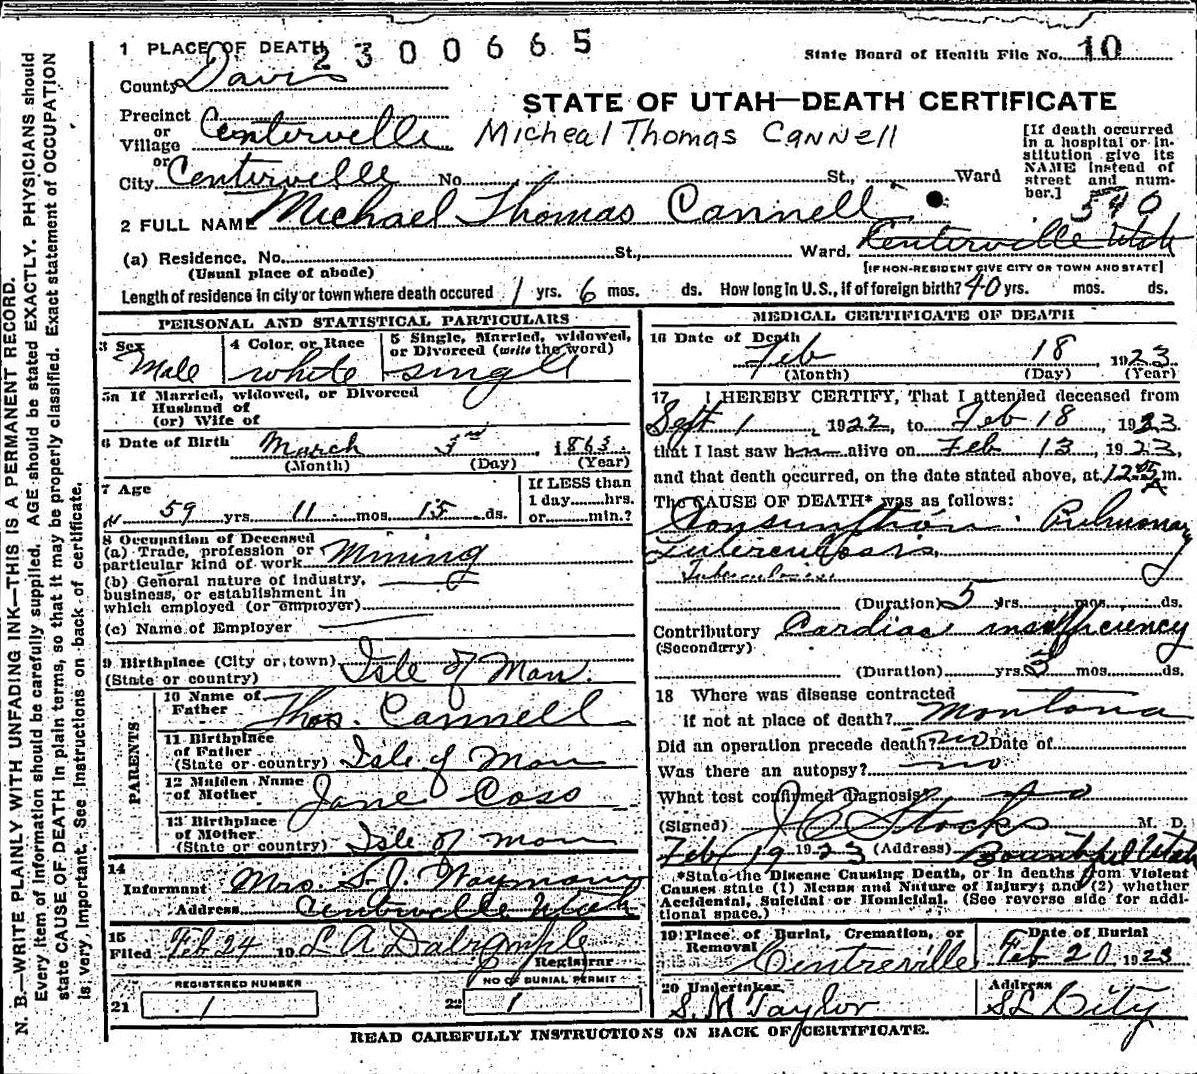 1 PLACE OF DEATH
2300665
State Board of Health File No. 10
County Davis
STATE OF UTAH—DEATH CERTIFICATE
Precinct
or
Village Centerville
Micheal Thomas Cannell
[If death occurred
in a hospital or in-
stitution give its
NAME instead of
street and num-
ber.]
or
City Centerville No. St., Ward
540
2 FULL NAME Michael Thomas Cannell
(a) Residence. No. St., Ward. Centerville Utah
(Usual place of abode)
[IF NON-RESIDENT GIVE CITY OR TOWN AND STATE]
Length of residence in city or town where death occured 1 yrs. 6 mos. ds. How long in U.S., if of foreign birth? 40 yrs. mos. ds.
PERSONAL AND STATISTICAL PARTICULARS
3 Sex Male
4 Color or Race white
5 Single, Married, widowed,
or Divorced (write the word)
single
5a If Married, widowed, or Divorced
Husband of
(or) Wife of
6 Date of Birth March 3rd, 1863
(Month) (Day) (Year)
7 Age
59 yrs. 11 mos. 15 ds.
If LESS than
1 day hrs.
or min.?
8 Occupation of Deceased
(a) Trade, profession or
particular kind of work Mining
(b) General nature of industry,
business, or establishment in
which employed (or employer)
(c) Name of Employer
9 Birthplace (City or town)
(State or country) Isle of Man.
PARENTS
10 Name of
Father Thos. Cannell
11 Birthplace
of Father
(State or country) Isle of Man
12 Maiden Name
of Mother Jane Coss
13 Birthplace
of Mother
(State or country) Isle of Man
14
Informant Mrs. S. J. Waymann
Address Centerville Utah
15
Filed Feb 24 19 L A Dalrymple
Registrar
REGISTERED NUMBER
21 1
NO OF BURIAL PERMIT
22 1
MEDICAL CERTIFICATE OF DEATH
16 Date of Death
Feb 18, 1923
(Month) (Day) (Year)
17 I HEREBY CERTIFY, That I attended deceased from
Sept 1, 1922, to Feb 18, 1923.
that I last saw h alive on Feb 13, 1923,
and that death occurred, on the date stated above, at 12 05 A m.
The CAUSE OF DEATH* was as follows:
Consumption. Pulmonary
Tuberculosis
Tuberculosis
(Duration) 5 yrs. mos. ds.
Contributory Cardiac insufficiency
(Secondary)
(Duration) yrs. 3 mos. ds.
18 Where was disease contracted
if not at place of death? Montana
Did an operation precede death? no Date of
Was there an autopsy? no
What test confirmed diagnosis? no
(Signed) J C Stocks M. D.
Feb 19 1923 (Address) Bountiful Utah
*State the Disease Causing Death, or in deaths from Violent
Causes state (1) Means and Nature of Injury; and (2) whether
Accidental, Suicidal or Homicidal. (See reverse side for addi-
tional space.)
19 Place of Burial, Cremation, or
Removal
Centreville
Date of Burial
Feb 20 1923
20 Undertaker
S. M Taylor
Address
SL City
READ CAREFULLY INSTRUCTIONS ON BACK OF CERTIFICATE.
N. B.—WRITE PLAINLY WITH UNFADING INK—THIS IS A PERMANENT RECORD.
Every item of information should be carefully supplied. AGE should be stated EXACTLY. PHYSICIANS should
state CAUSE OF DEATH in plain terms, so that it may be properly classified. Exact statement of OCCUPATION
is very important. See instructions on back of certificate.